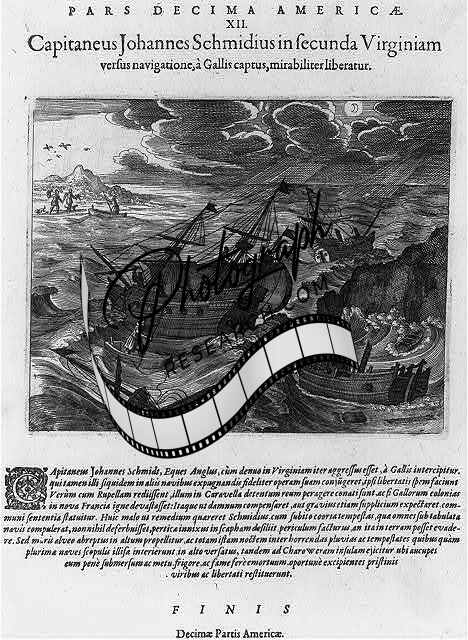 PARS DECIMA AMERICÆ.
XII.
Capitaneus Johannes Schmidius in secunda Virginiam
versus navigatione, à Gallis captus, mirabiliter liberatur.
Photograph
RESEARCH.COM
CApitaneus Johannes Schmids, Eques Anglus, cùm denuo in Virginiam iter aggressus esset, à Gallis intercipitur,
qui tamen illi, siquidem in aliis navibus expugnandis fideliter operam suam conjungeret, ipsi libertatis spem faciunt
Verùm cum Rupellam rediissent, illum in Caravella detentum roum peragere conati sunt, ac si Gallorum colonias
in nova Francia igne devastasset: Itaque ut damnum compensaret, aut gravius etiam supplicium expectaret, com-
muni sententia statuitur. Huic malo ut remedium quæreret Schmidius, cum subito coorta tempestas, qua omnes sub tabulata
navis compulerat, nonnihil deferbuisset, pertica innixus in scapham desiliit, periculum facturus an ita in terram posset evade-
re. Sed maris alveo abreptus in altum propellitur, ac totam istam noctem inter horrendas pluvias ac tempestates quibus quàm
plurimæ naves scopulis illisæ interierunt, in alto versatus, tandem ad Charowe ram insulam ejicitur ubi aucupes
eum penè submersum ac metu, frigore, ac fame ferè emortuum, oportunè excipientes pristinis
viribus ac libertati restituerunt.
FINIS
Decimæ Partis Americæ.